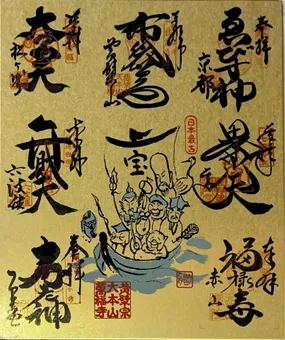 奉拝
ゑびす神
京都
奉拝
布袋尊
黄檗山
奉拝
大黒天
松ヶ崎
奉拝
毘沙門天
日本最古
宝
奉拝
弁財天
六波羅
奉拝
福禄寿
赤山
黄檗宗
大本山
萬福寺
奉拝
寿老神